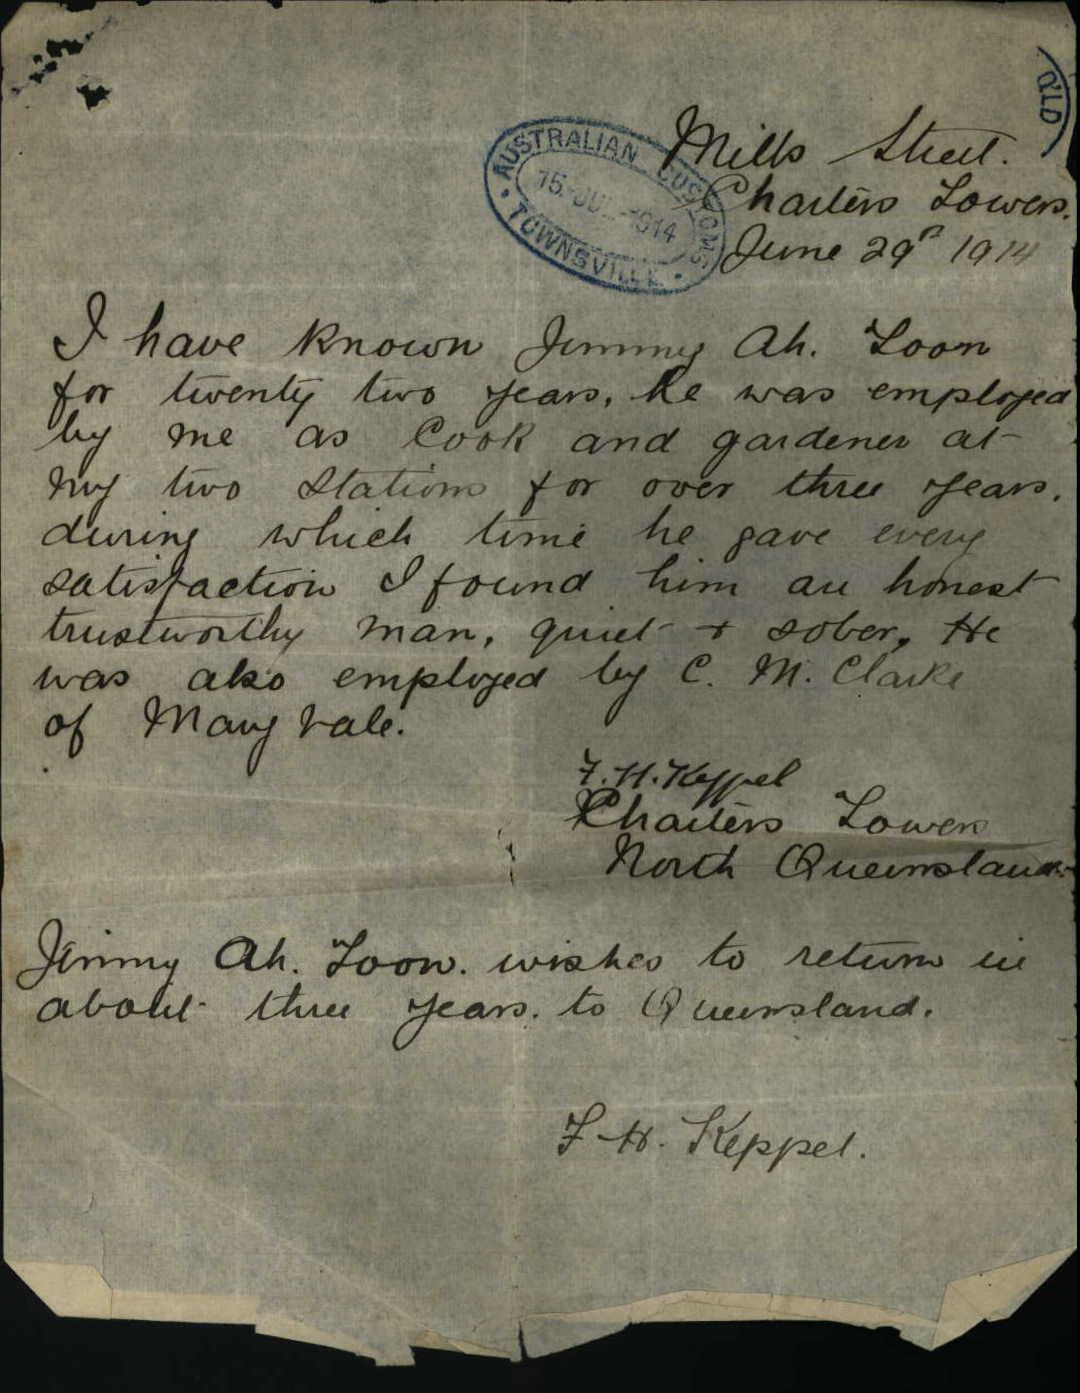 QLD
Mills Street.
AUSTRALIAN CUSTOMS
15 JUL 1914
TOWNSVILLE
Charters Towers.
June 29th 1914
I have known Jimmy Ah. Loon
for twenty two years, he was employed
by me as Cook and gardener at
my two Stations for over three years.
during which time he gave every
satisfaction I found him an honest
trustworthy man, quiet + sober, He
was also employed by C. M. Clarke
of Mary vale.
F. H. Keppel
Charters Towers
North Queensland
Jimmy Ah. Loon. wishes to return in
about three years. to Queensland.
F. H. Keppel.